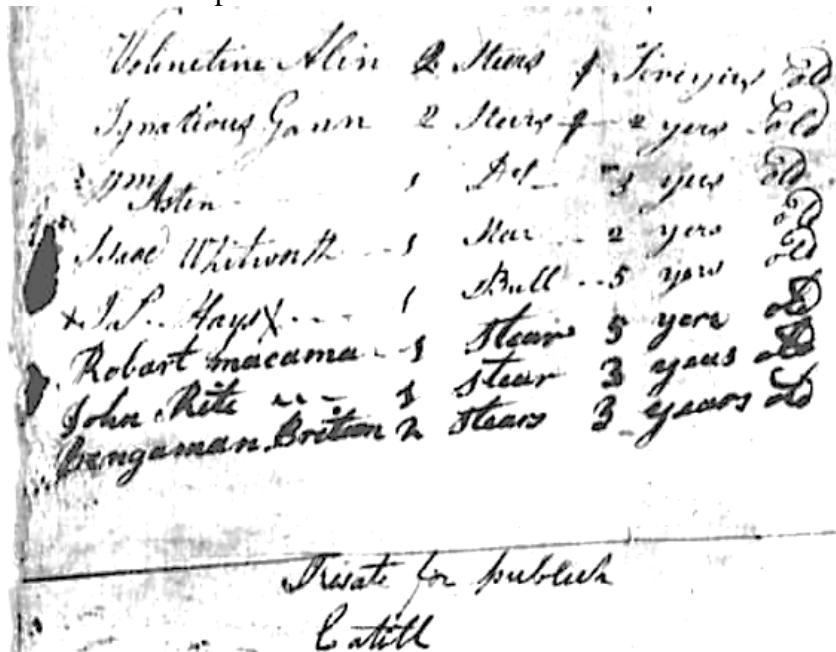 Velinetine Alin 2 Steers 4 Five yers old
Ignatious Gann 2 Steirs 2 yers old
Wm Asten 1 3 yers old
Isaac Whitworth - 1 Stear - 2 yers old
x J. P. Hays x - - - 1 Bull - - 5 yers old
Robart macama - 1 stear 5 yers old
John Rite - - - 1 stear 3 years old
Bengaman Britten 2 stears 3 years old
for publick
Catill